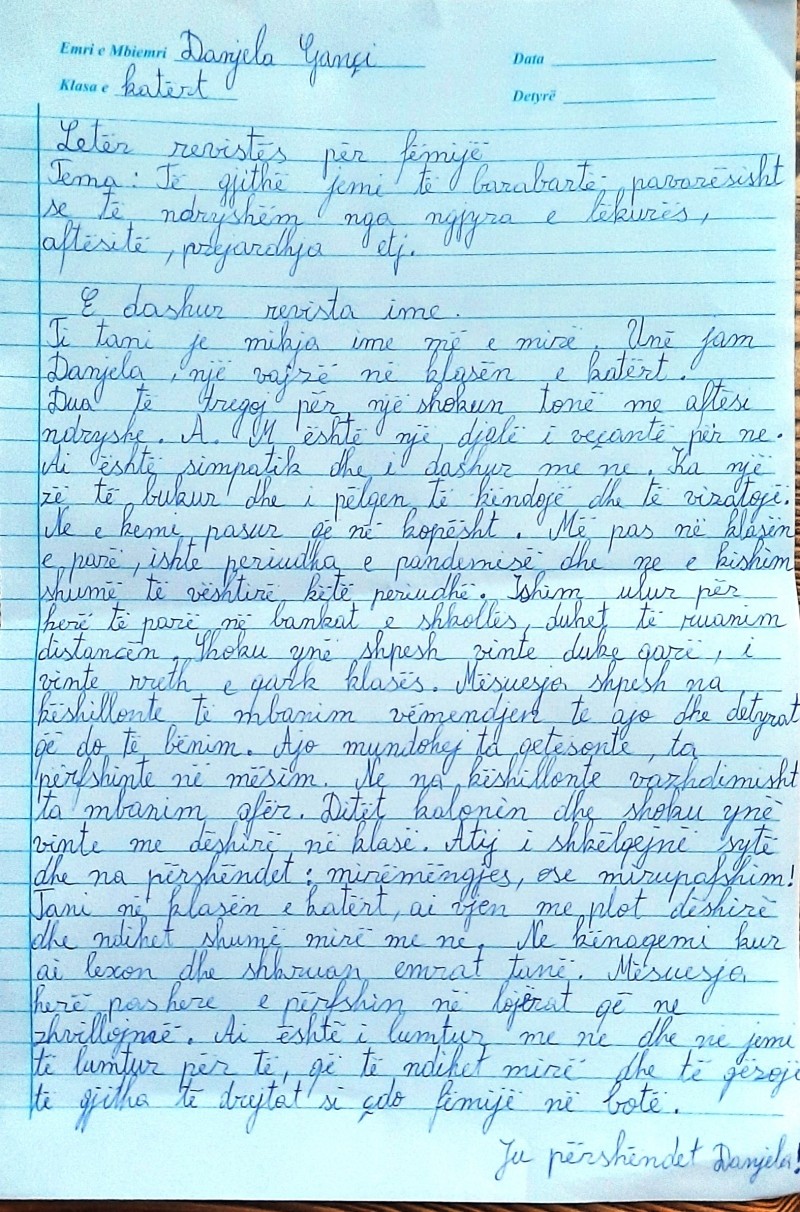 Emri e Mbiemri Danjela Gançi
Data
Klasa e katërt
Detyrë
Letër revistës për fëmijë
Tema: Të gjithë jemi të barabartë pavarësisht
se të ndryshëm nga ngjyra e lëkurës,
aftësitë, prejardhja etj.
E dashur revista ime.
Ti tani je mikja ime më e mirë. Unë jam
Danjela, një vajzë në klasën e katërt.
Dua të tregoj për një shokun tonë me aftësi
ndryshe. A. M është një djalë i veçantë për ne.
Ai është simpatik dhe i dashur me ne. Ka një
zë të bukur dhe i pëlqen të këndojë dhe të vizatojë.
Ne e kemi pasur që në kopësht. Më pas në klasën
e parë, ishte periudha e pandemisë dhe ne e kishim
shumë të vështirë këtë periudhë. Ishim ulur për
herë të parë në bankat e shkollës, duhet të ruanim
distancën. Shoku ynë shpesh vinte duke qarë, i
vinte rreth e qark klasës. Mësuesja shpesh na
këshillonte të mbanim vëmendjen te ajo dhe detyrat
që do të bënim. Ajo mundohej ta qetësonte, ta
përfshinte në mësim. Ne na këshillonte vazhdimisht
ta mbanim afër. Ditët kalonin dhe shoku ynë
vinte me dëshirë në klasë. Atij i shkëlqejnë sytë
dhe na përshëndet: mirëmëngjes, ose mirupafshim!
Tani në klasën e katërt, ai vjen me plot dëshirë
dhe ndihet shumë mirë me ne. Ne kënaqemi kur
ai lexon dhe shkruan emrat tanë. Mësuesja
herë pas here e përfshin në lojërat që ne
zhvillojmë. Ai është i lumtur me ne dhe ne jemi
të lumtur për të, që të ndihet mirë dhe të gëzojë
të gjitha të drejtat si çdo fëmijë në botë.
Ju përshëndet Danjela!